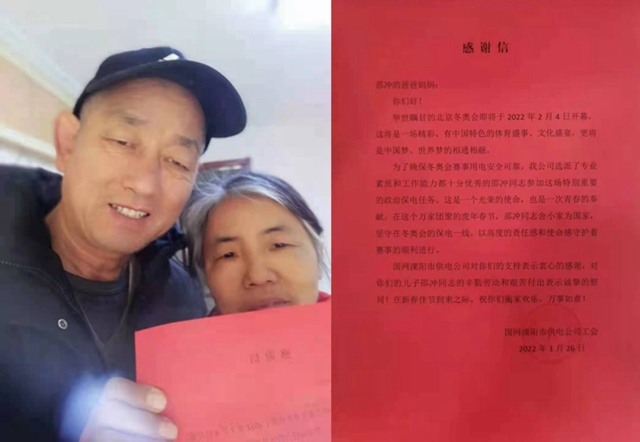 感谢信
邵冲的爸爸妈妈：
你们好！
举世瞩目的北京冬奥会即将于 2022 年 2 月 4 日开幕，
这将是一场精彩、有中国特色的体育盛事、文化盛宴，更将
是中国梦、世界梦的相通相融。
为了确保冬奥会赛事用电安全可靠，我公司选派了专业
素质和工作能力都十分优秀的邵冲同志参加这场特别重要
的政治保电任务。这是一个光荣的使命，也是一次青春的奉
献。在这个万家团聚的虎年春节，邵冲同志舍小家为国家，
坚守在冬奥会的保电一线，以高度的责任感和使命感守护着
赛事的顺利进行。
国网溧阳市供电公司对你们的支持表示衷心的感谢，对
你们的儿子邵冲同志的辛勤劳动和艰苦付出表示诚挚的慰
问！在新春佳节到来之际，祝你们阖家欢乐，万事如意！
国网溧阳市供电公司工会
2022 年 1 月 26 日
感谢信